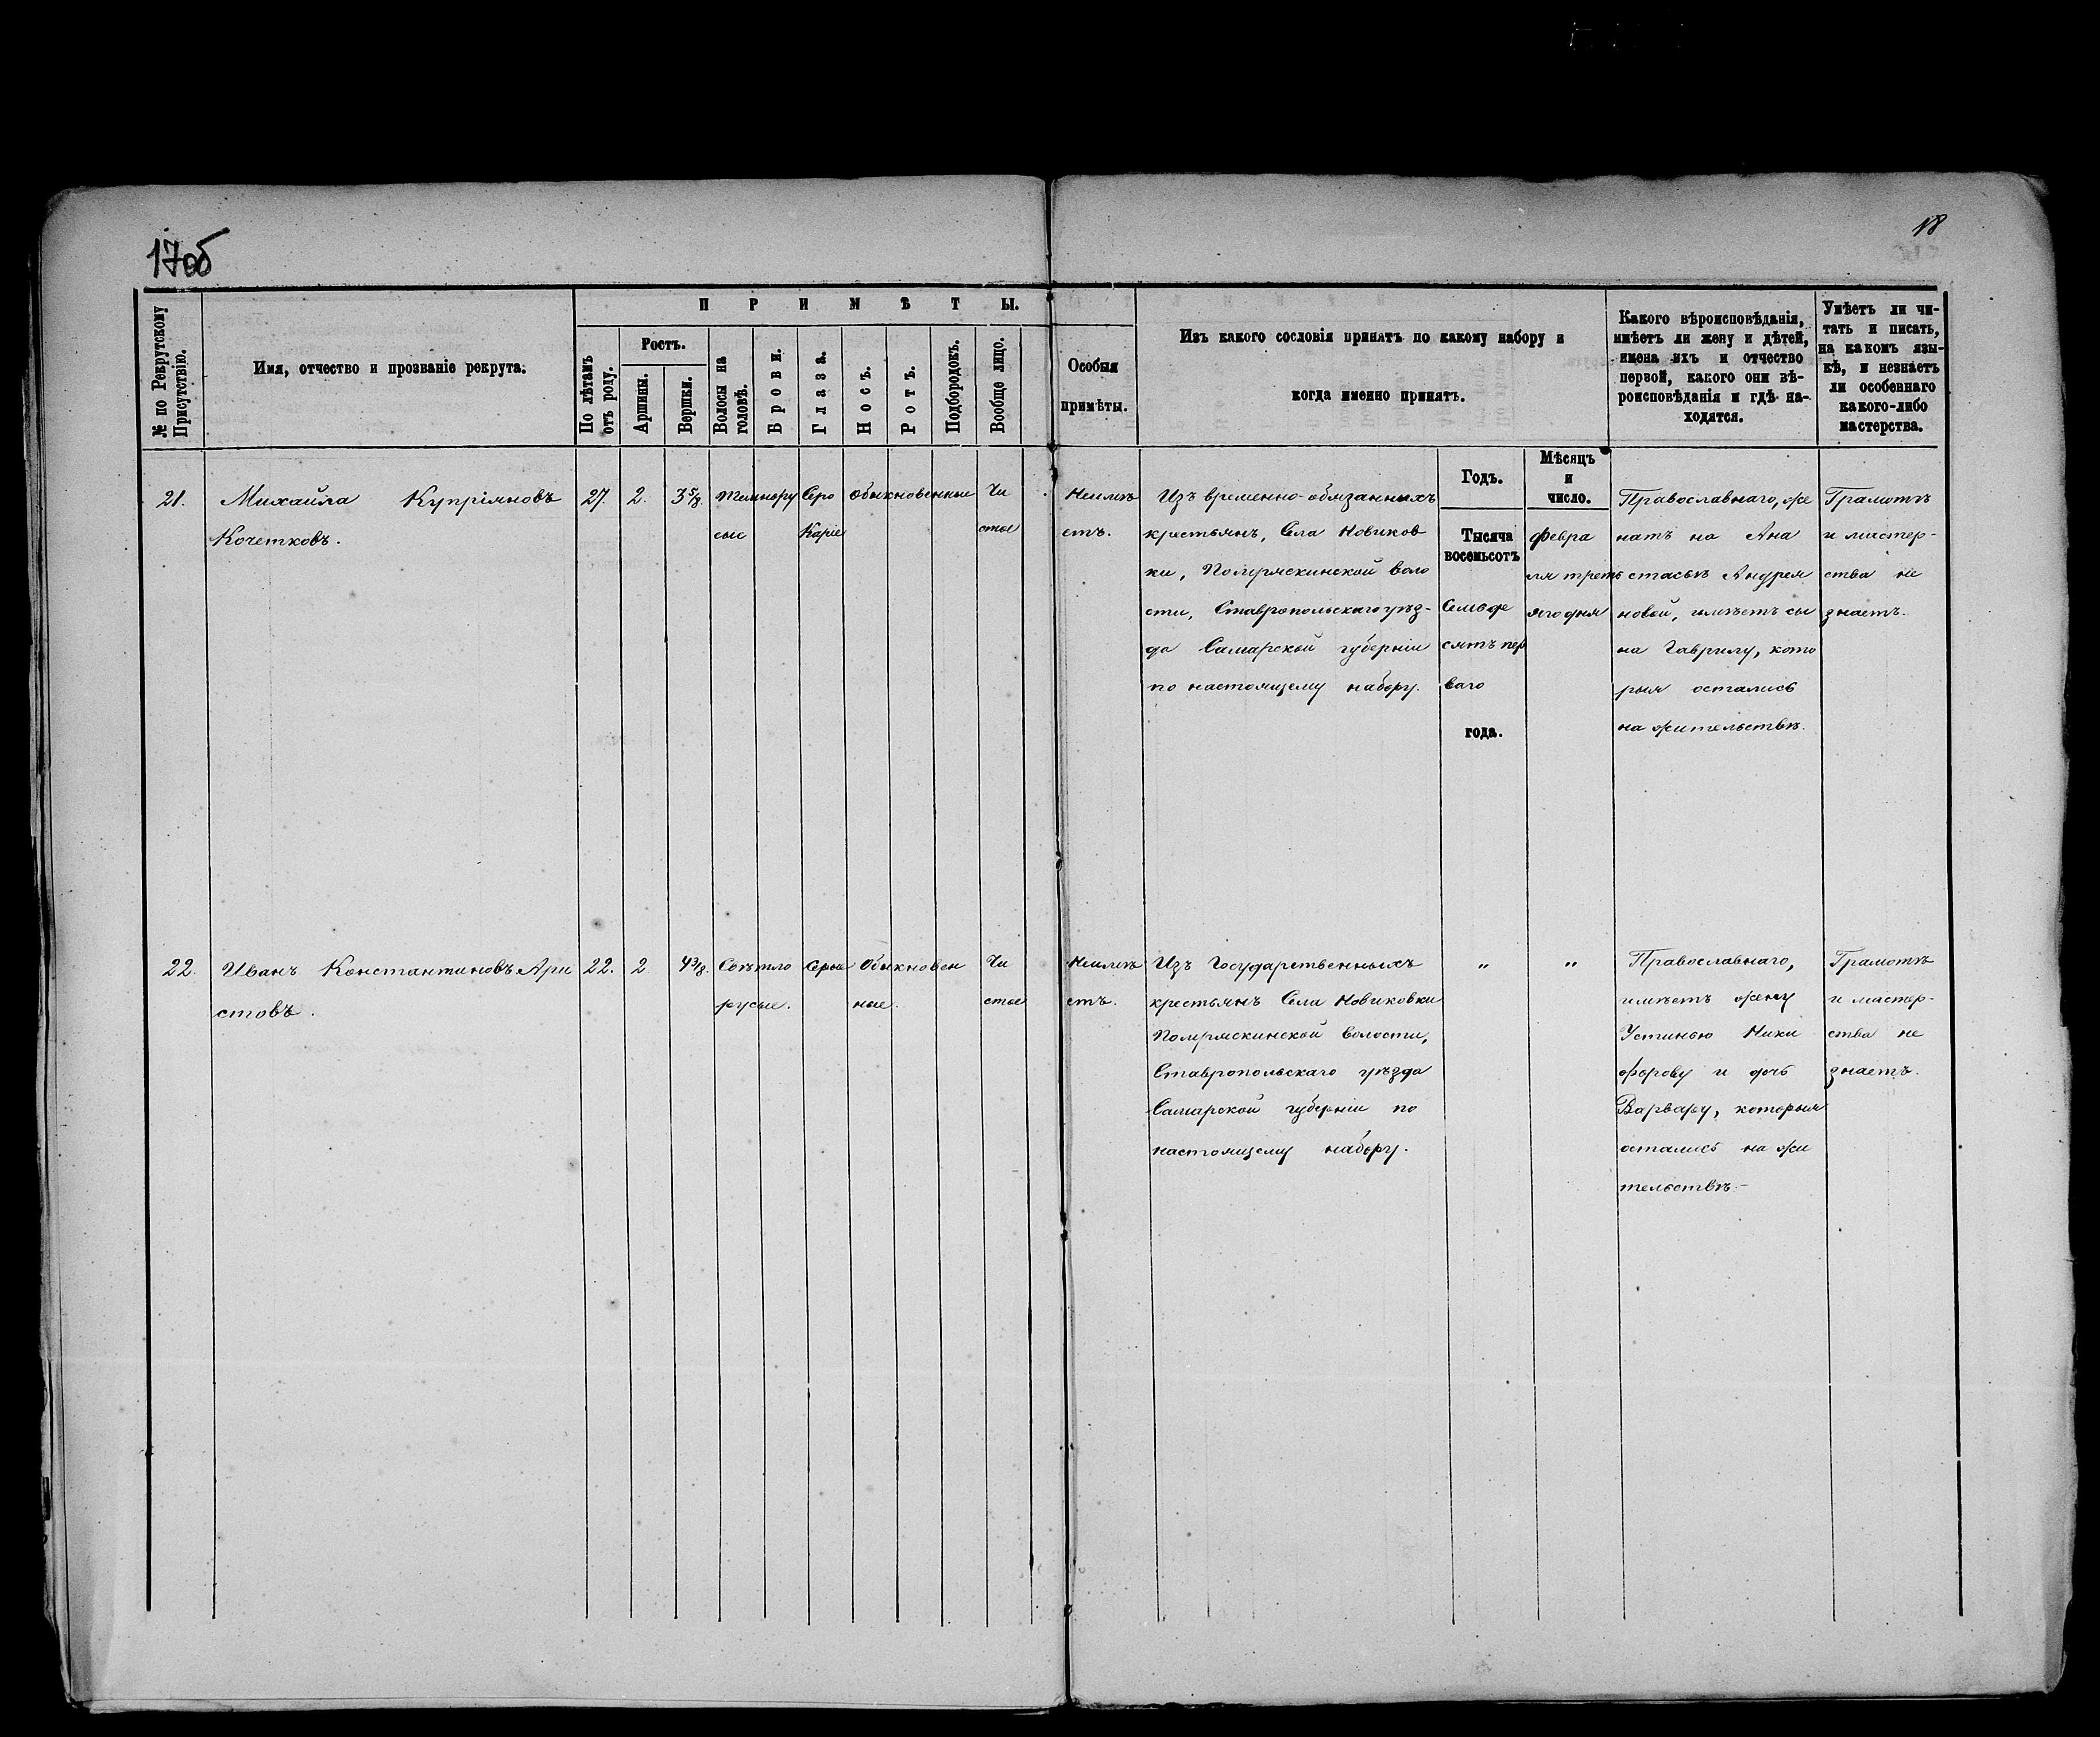 17об
18
№ по Рекрутскому Присутствію.
Имя, отчество и прозваніе рекрута.
ПРИМѢТЫ.
По лѣтамъ отъ роду.
Ростъ.
Аршины.
Вершки.
Волосы на головѣ.
Брови.
Глаза.
Носъ.
Ротъ.
Подбородокъ.
Вообще лицо.
Особыя
примѣты.
Изъ какого сословія принятъ по какому набору и
когда именно принятъ.
Какого вѣроисповѣданія,
имѣетъ ли жену и дѣтей,
имена ихъ и отчество
первой, какого они вѣ-
роисповѣданія и гдѣ на-
ходятся.
Умѣетъ ли чи-
тать и писать,
на какомъ язы-
кѣ, и незнаетъ
ли особеннаго
какого-либо
мастерства.
21.
Михайла Купріяновъ
Кочетковъ.
27.
2.
3 5/8.
Темнору
сые
Серо
Каріе
Обыкновенные
Чи
стое
Неимѣ
етъ.
Изъ временно-обязанныхъ
крестьянъ, Села Новиков
ки, Помряскинской воло
сти, Ставропольскаго уѣз-
да Самарской губерніи
по настоящему набору.
Годъ.
Тысяча
восемьсотъ
Семьде
сятъ пер
ваго
года.
Мѣсяцъ
и
число.
Февра
ля треть
яго дня
Православнаго, же
натъ на Ана
стасьѣ Андрея
новой, имѣетъ сы
на Гаврилу, кото
рыя остались
на жительствѣ.
Грамотѣ
и мастер-
ства не
знаетъ.
22.
Иванъ Константиновъ Ари
стовъ.
22.
2
4 3/8.
Свѣтло
русые.
Серые
Обыкновен
ные.
Чи
стое
Неимѣ
етъ.
Изъ Государственныхъ
крестьянъ Села Новиковки
Помряскинской волости,
Ставропольскаго уѣзда
Самарской губерніи по
настоящему набору.
"
"
Православнаго,
имѣетъ жену
Устинью Ники
форову и дочь
Варвару, которыя
остались на жи
тельствѣ.-
Грамотѣ
и мастер-
ства не
знаетъ.